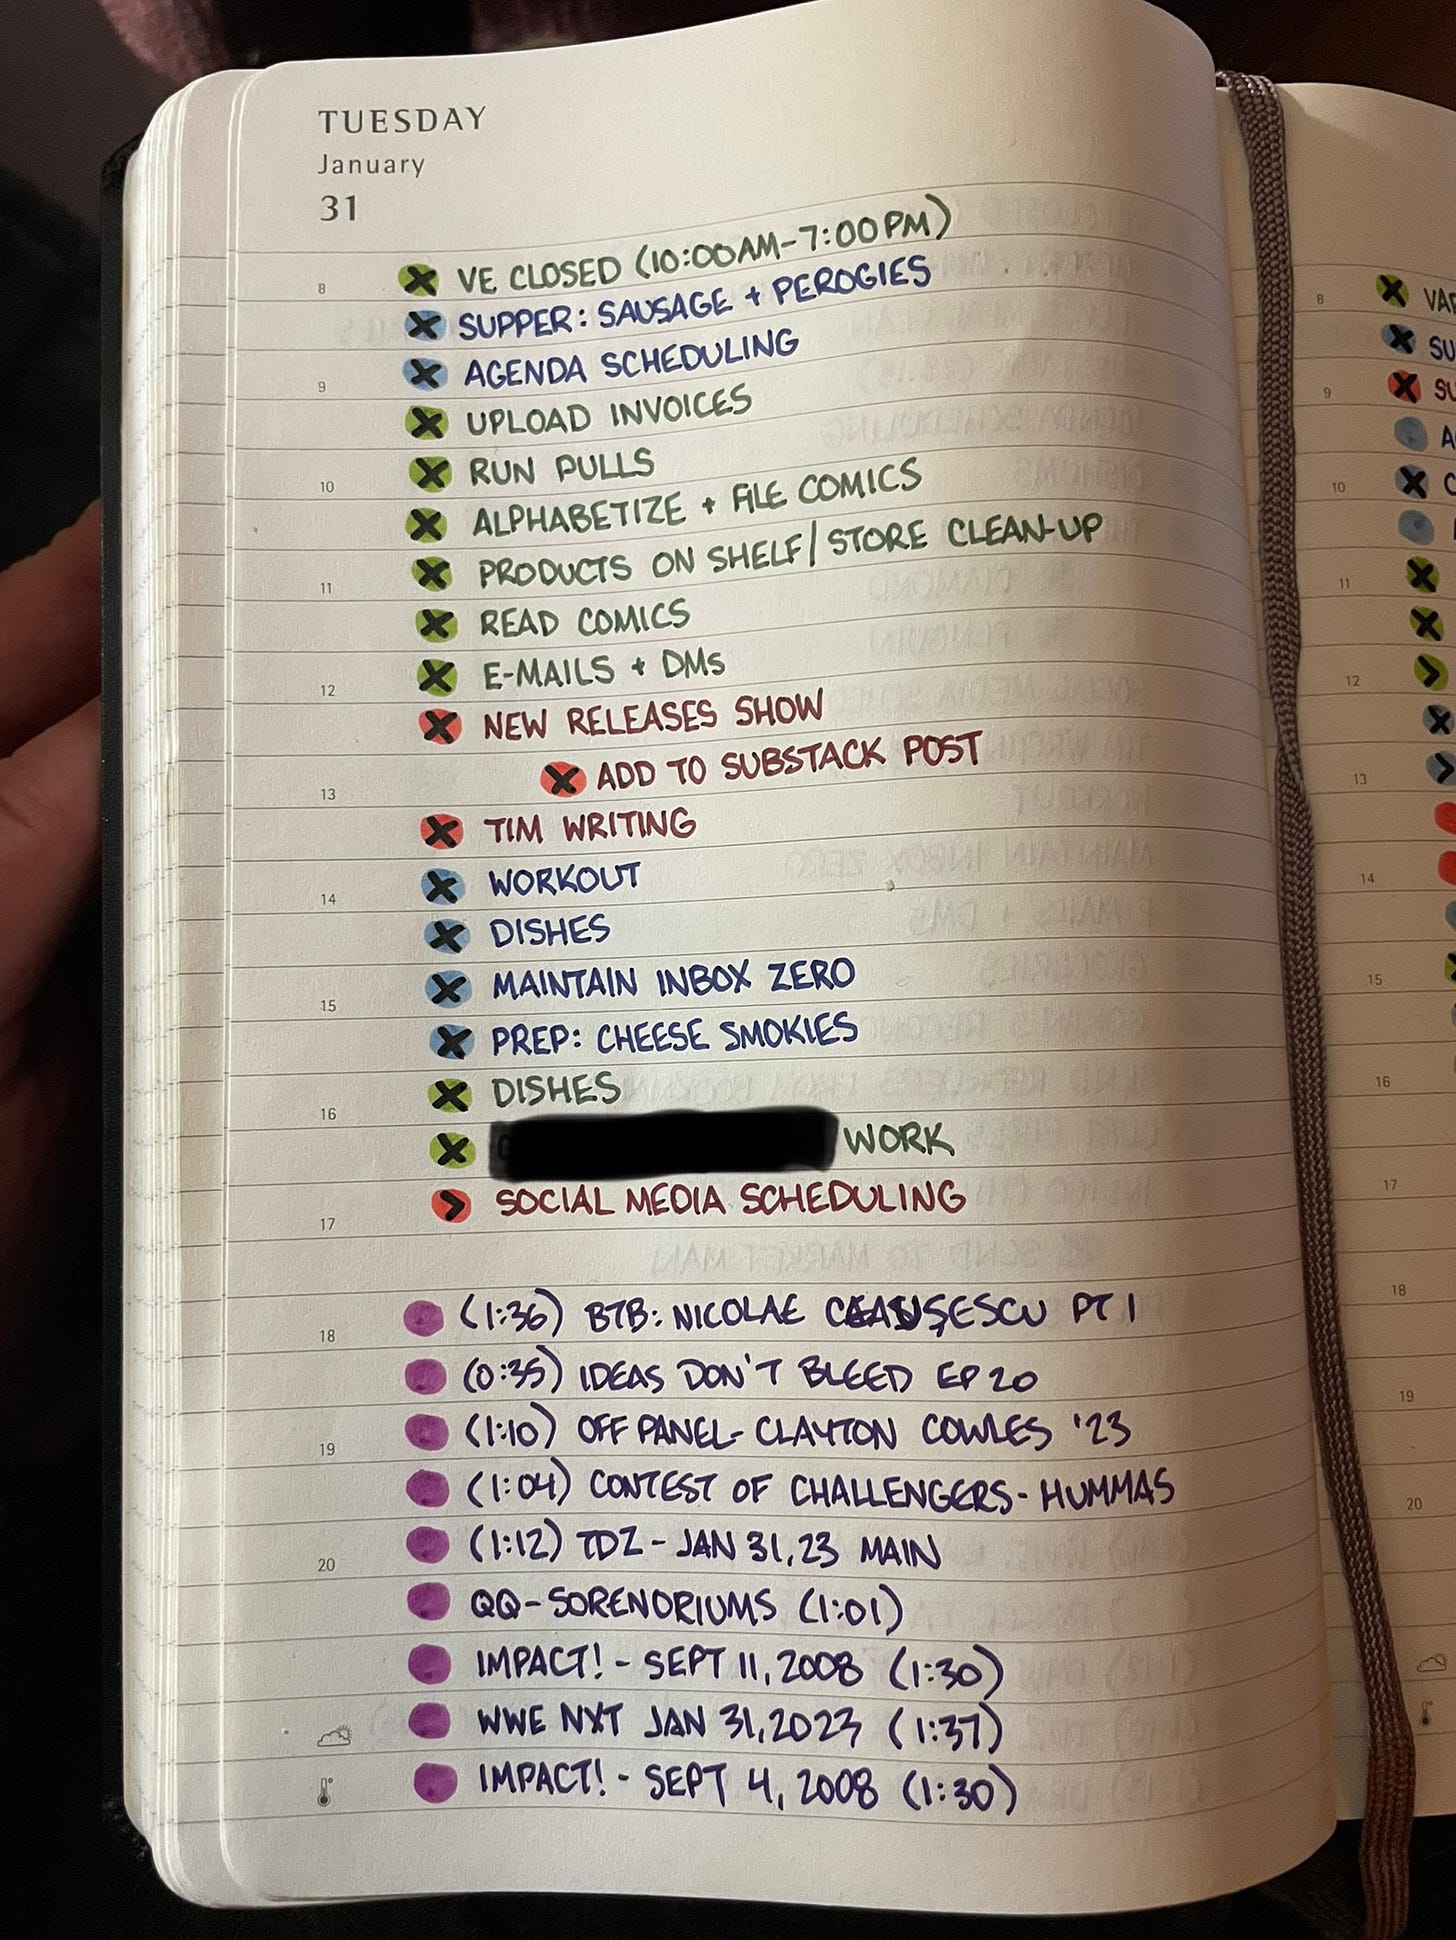 TUESDAY
January
31
8 VE CLOSED (10:00AM-7:00PM)
SUPPER: SAUSAGE + PEROGIES
9 AGENDA SCHEDULING
UPLOAD INVOICES
10 RUN PULLS
ALPHABETIZE + FILE COMICS
11 PRODUCTS ON SHELF/STORE CLEAN-UP
READ COMICS
12 E-MAILS + DMs
NEW RELEASES SHOW
13 ADD TO SUBSTACK POST
TIM WRITING
14 WORKOUT
DISHES
15 MAINTAIN INBOX ZERO
PREP: CHEESE SMOKIES
16 DISHES
WORK
17 SOCIAL MEDIA SCHEDULING
18 (1:36) BTB: NICOLAE CEAUȘESCU PT 1
(0:35) IDEAS DON'T BLEED EP 20
19 (1:10) OFF PANEL- CLAYTON COWLES '23
(1:04) CONTEST OF CHALLENGERS- HUMMAS
20 (1:12) TDZ - JAN 31, 23 MAIN
QQ-SORENORIUMS (1:01)
IMPACT! - SEPT 11, 2008 (1:30)
WWE NXT JAN 31, 2023 (1:37)
IMPACT! - SEPT 4, 2008 (1:30)
8 VAR
SU
9 SU
A
10 C
11
12
13
14
15
16
17
18
19
20